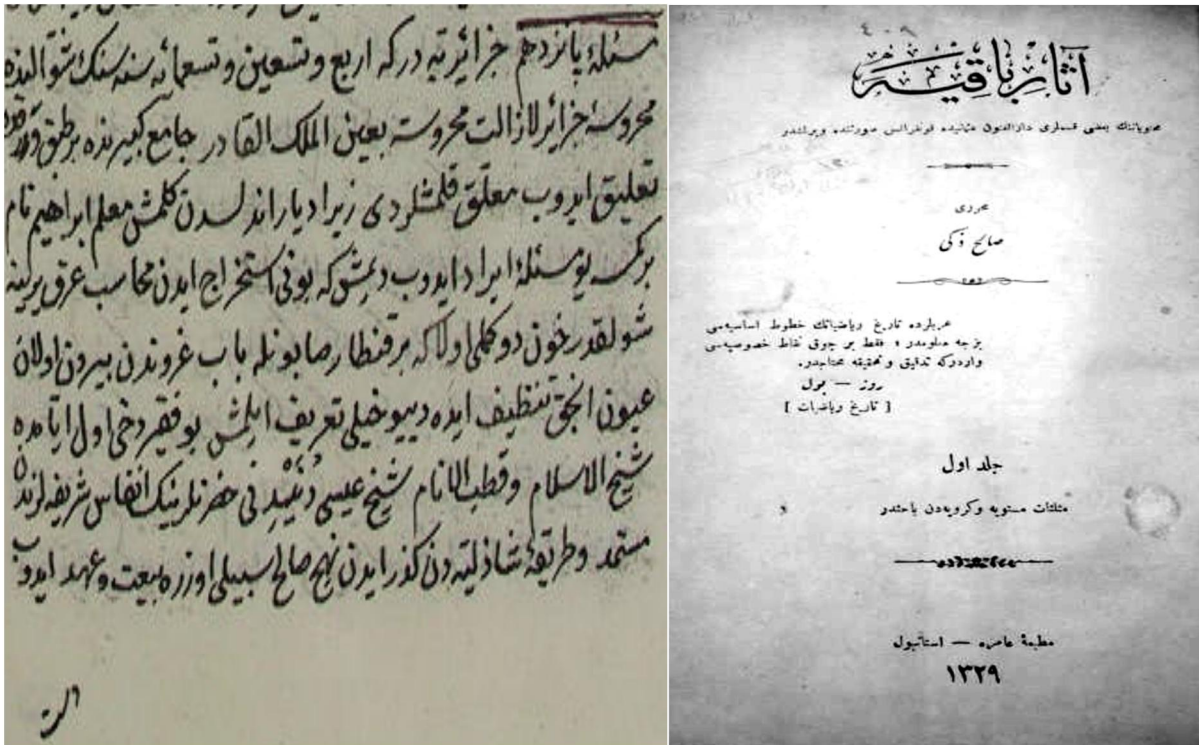 مسئلهٔ پانزدهم جزائریه در که اربع و تسعین و تسعمائه سنه سنك شوالنده
محروسهٔ جزائر لازالت محروسته بعین الملك القادر جامع کبیرنده بر طبق ورق
تعلیق ایدوب معلق قلمشلردی زیرا دیار اندلسدن کلمش معلم ابراهیم نام
بر کمسه بو مسئلهٔ ایراد ایدوب دیمش که بونی استخراج ایدن محاسب عرق
شولقدر خون دوکملی اولا که بر قنطار صابونله باب عزوندن بیرون اولان
عیون الحق تنظیف ایده دییو خیلی تعریف ایلمش بو فقیر دخی اول ایامده
شیخ الاسلام و قطب الانام شیخ عیسی حضرتلرینك انفاس شریفه لرندن
مستمد و طریقهٔ شاذلیه دن کذر ایدن نهج صالح سبیلی اوزره بیعت و عهد ایدوب
٤٠٩
آثار باقیه
محتویاتنك بعض قسملری دارالفنون عثمانیده قونفرانس صورتنده ویرلمشدر
محرری
صالح زکی
عربلرده تاریخ ریاضیاتك خطوط اساسیه‌سی
بزجه معلومدر ، فقط بر چوق نقاط خصوصیه‌سی
واردرکه تدقیق و تحقیقه محتاجدر.
روز — بول
[ تاریخ ریاضیات ]
جلد اول
مثلثات مستویه و کرویه‌دن باحثدر
مطبعهٔ عامره — استانبول
١٣٢٩